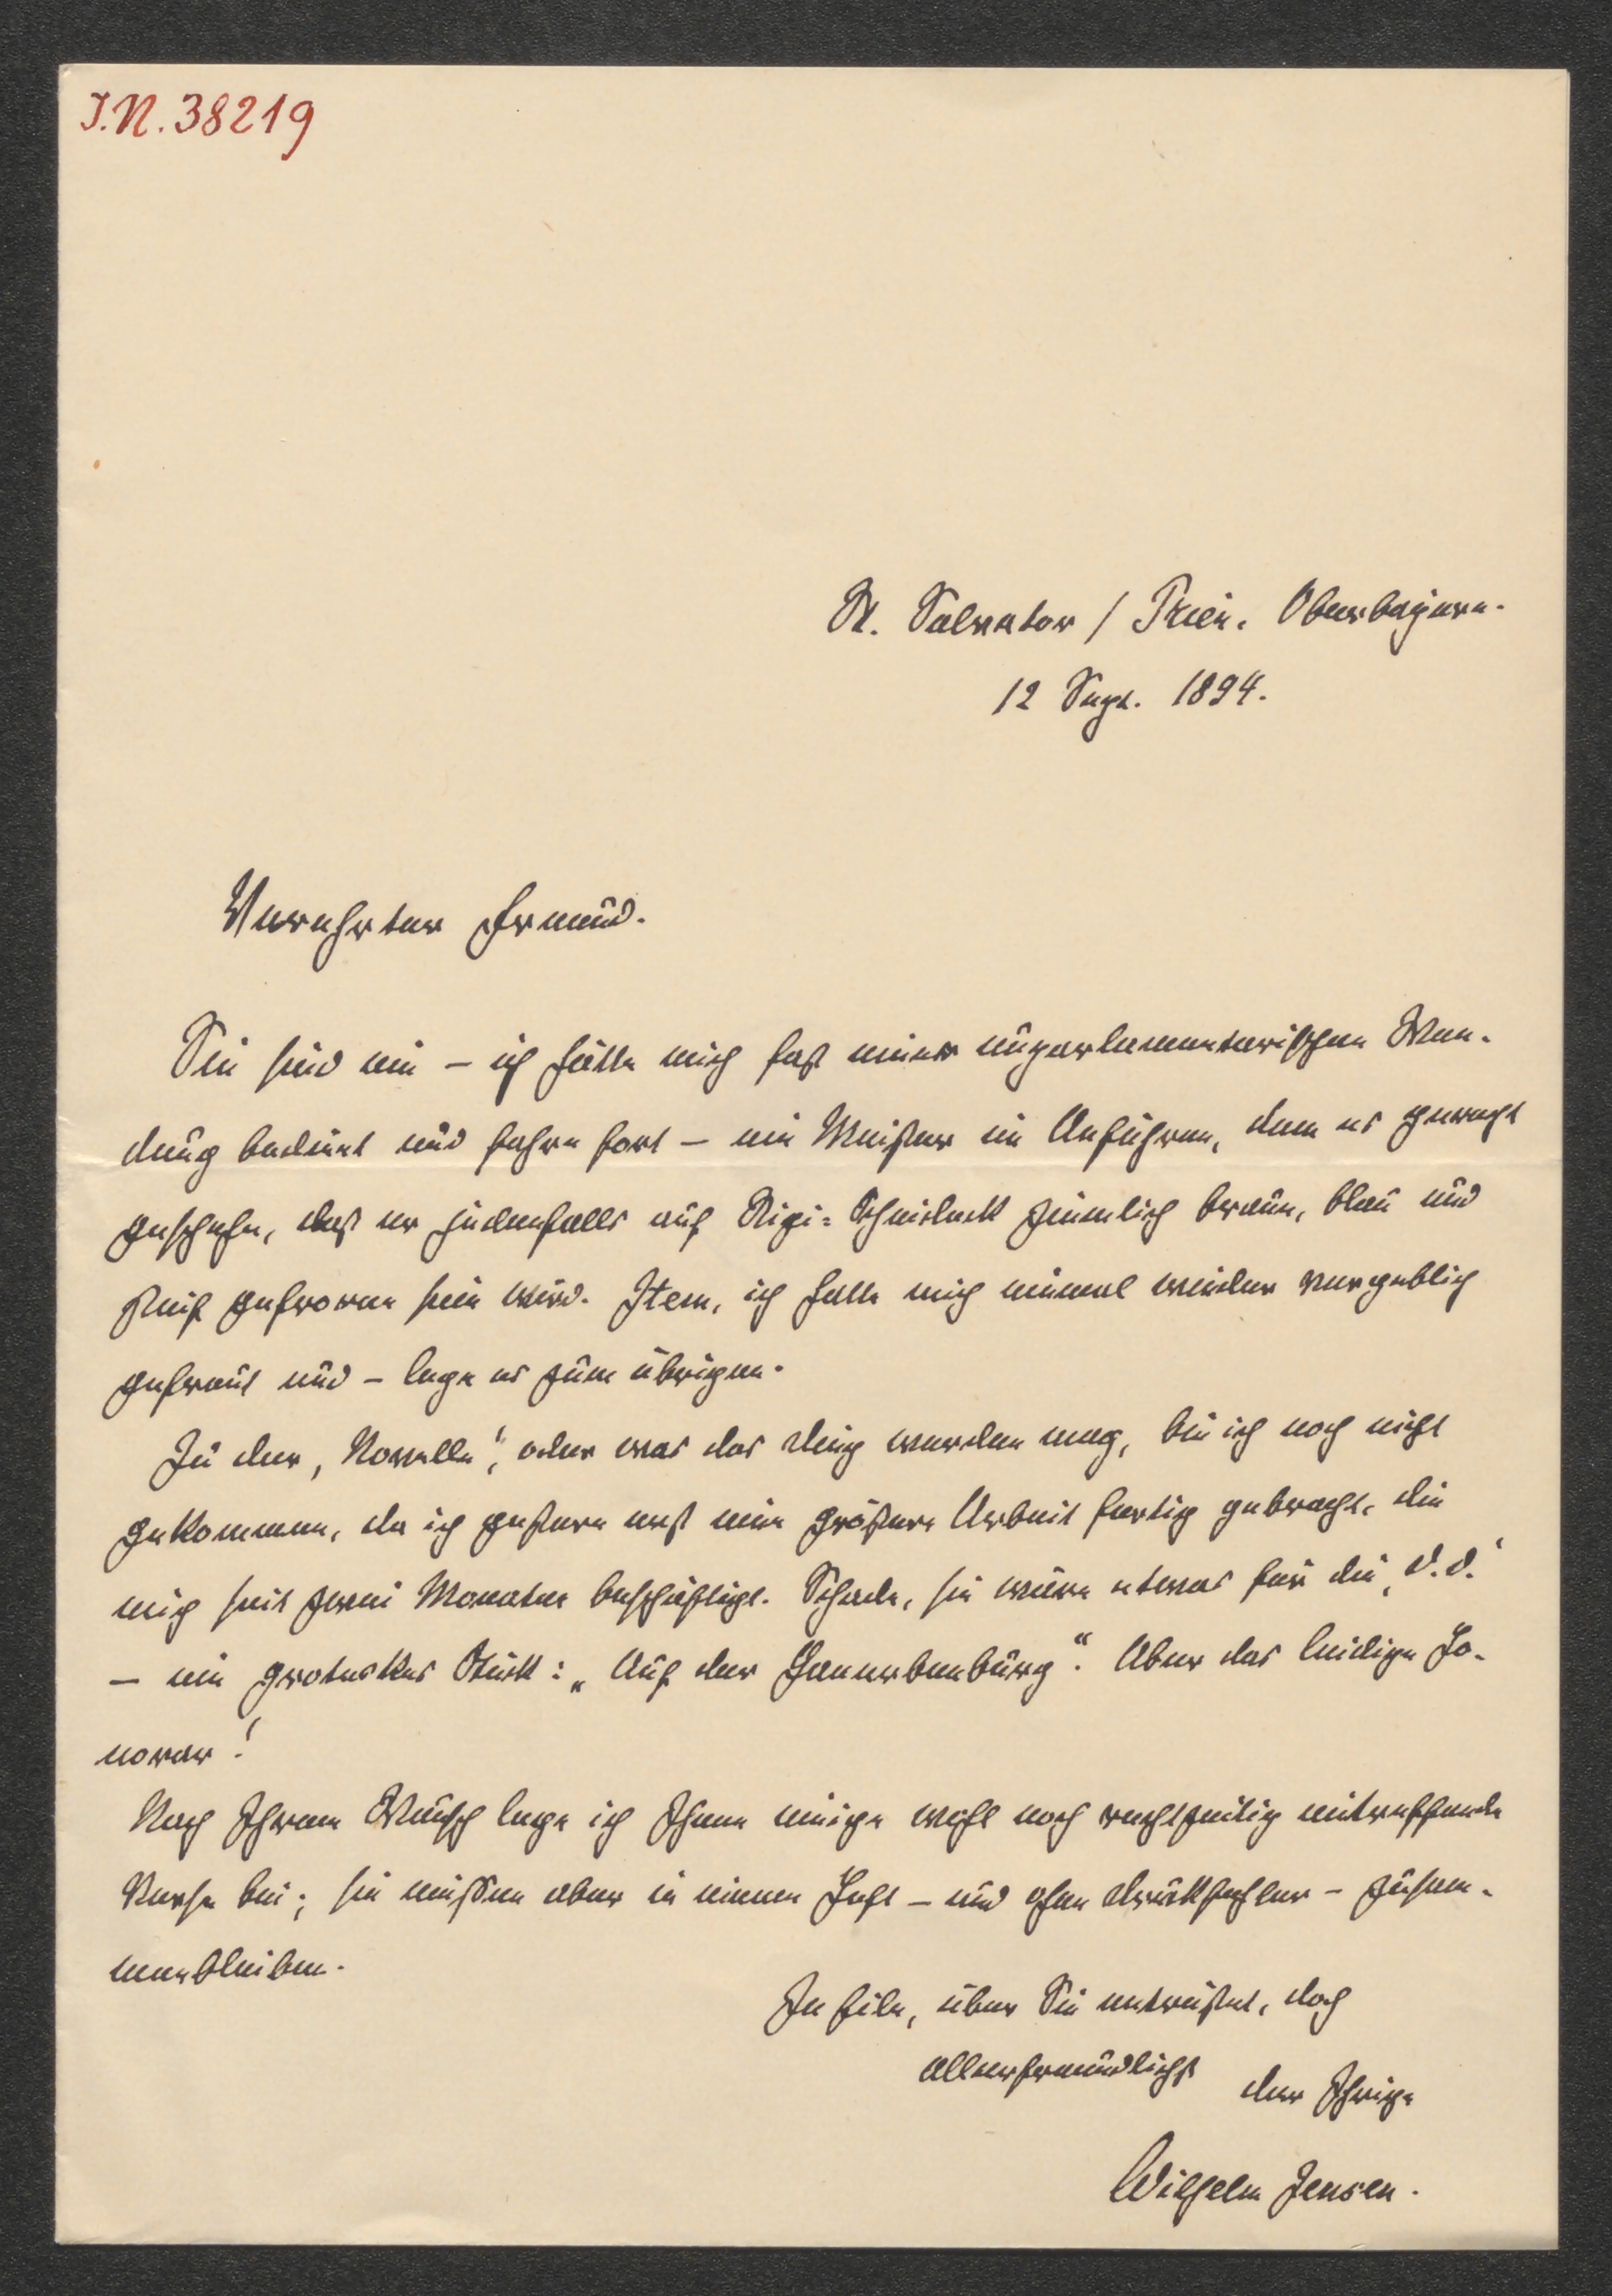 I.N. 38219
St. Salvator / Prien. Oberbayern.
12 Sept. 1894.
Verehrter Freund.
Sie sind ein – ich hätte mich fast einer unparlamentarischen Wen-
dung bedient und fahre fort – ein Meister im Anführen, dem es gerecht
geschehe, daß er jedenfalls auf Rigi-Scheideck ziemlich braun, blau und
steif gefroren sein wird. Item, ich habe mich einmal wieder vergeblich
gefreut und – lege es zum übrigen.
Zu der ‚Novelle‘, oder was das Ding werden mag, bin ich noch nicht
gekommen, da ich gestern erst eine größere Arbeit fertig gebracht, die
mich seit zwei Monaten beschäftigt. Schade, sie wäre etwas für die ‚D.D.‘
– ein groteskes Stück: „Auf der Ganerbenburg“. Aber das leidige Ho-
norar!
Nach Ihrem Wunsch lege ich Ihnen einige wohl noch rechtzeitig eintreffende
Verse bei; sie müssen aber in einem Heft – und ohne Druckfehler – zusam-
menbleiben.
In Eile, über Sie entrüstet, doch
allerfreundlichst
der Ihrige
Wilhelm Jensen.